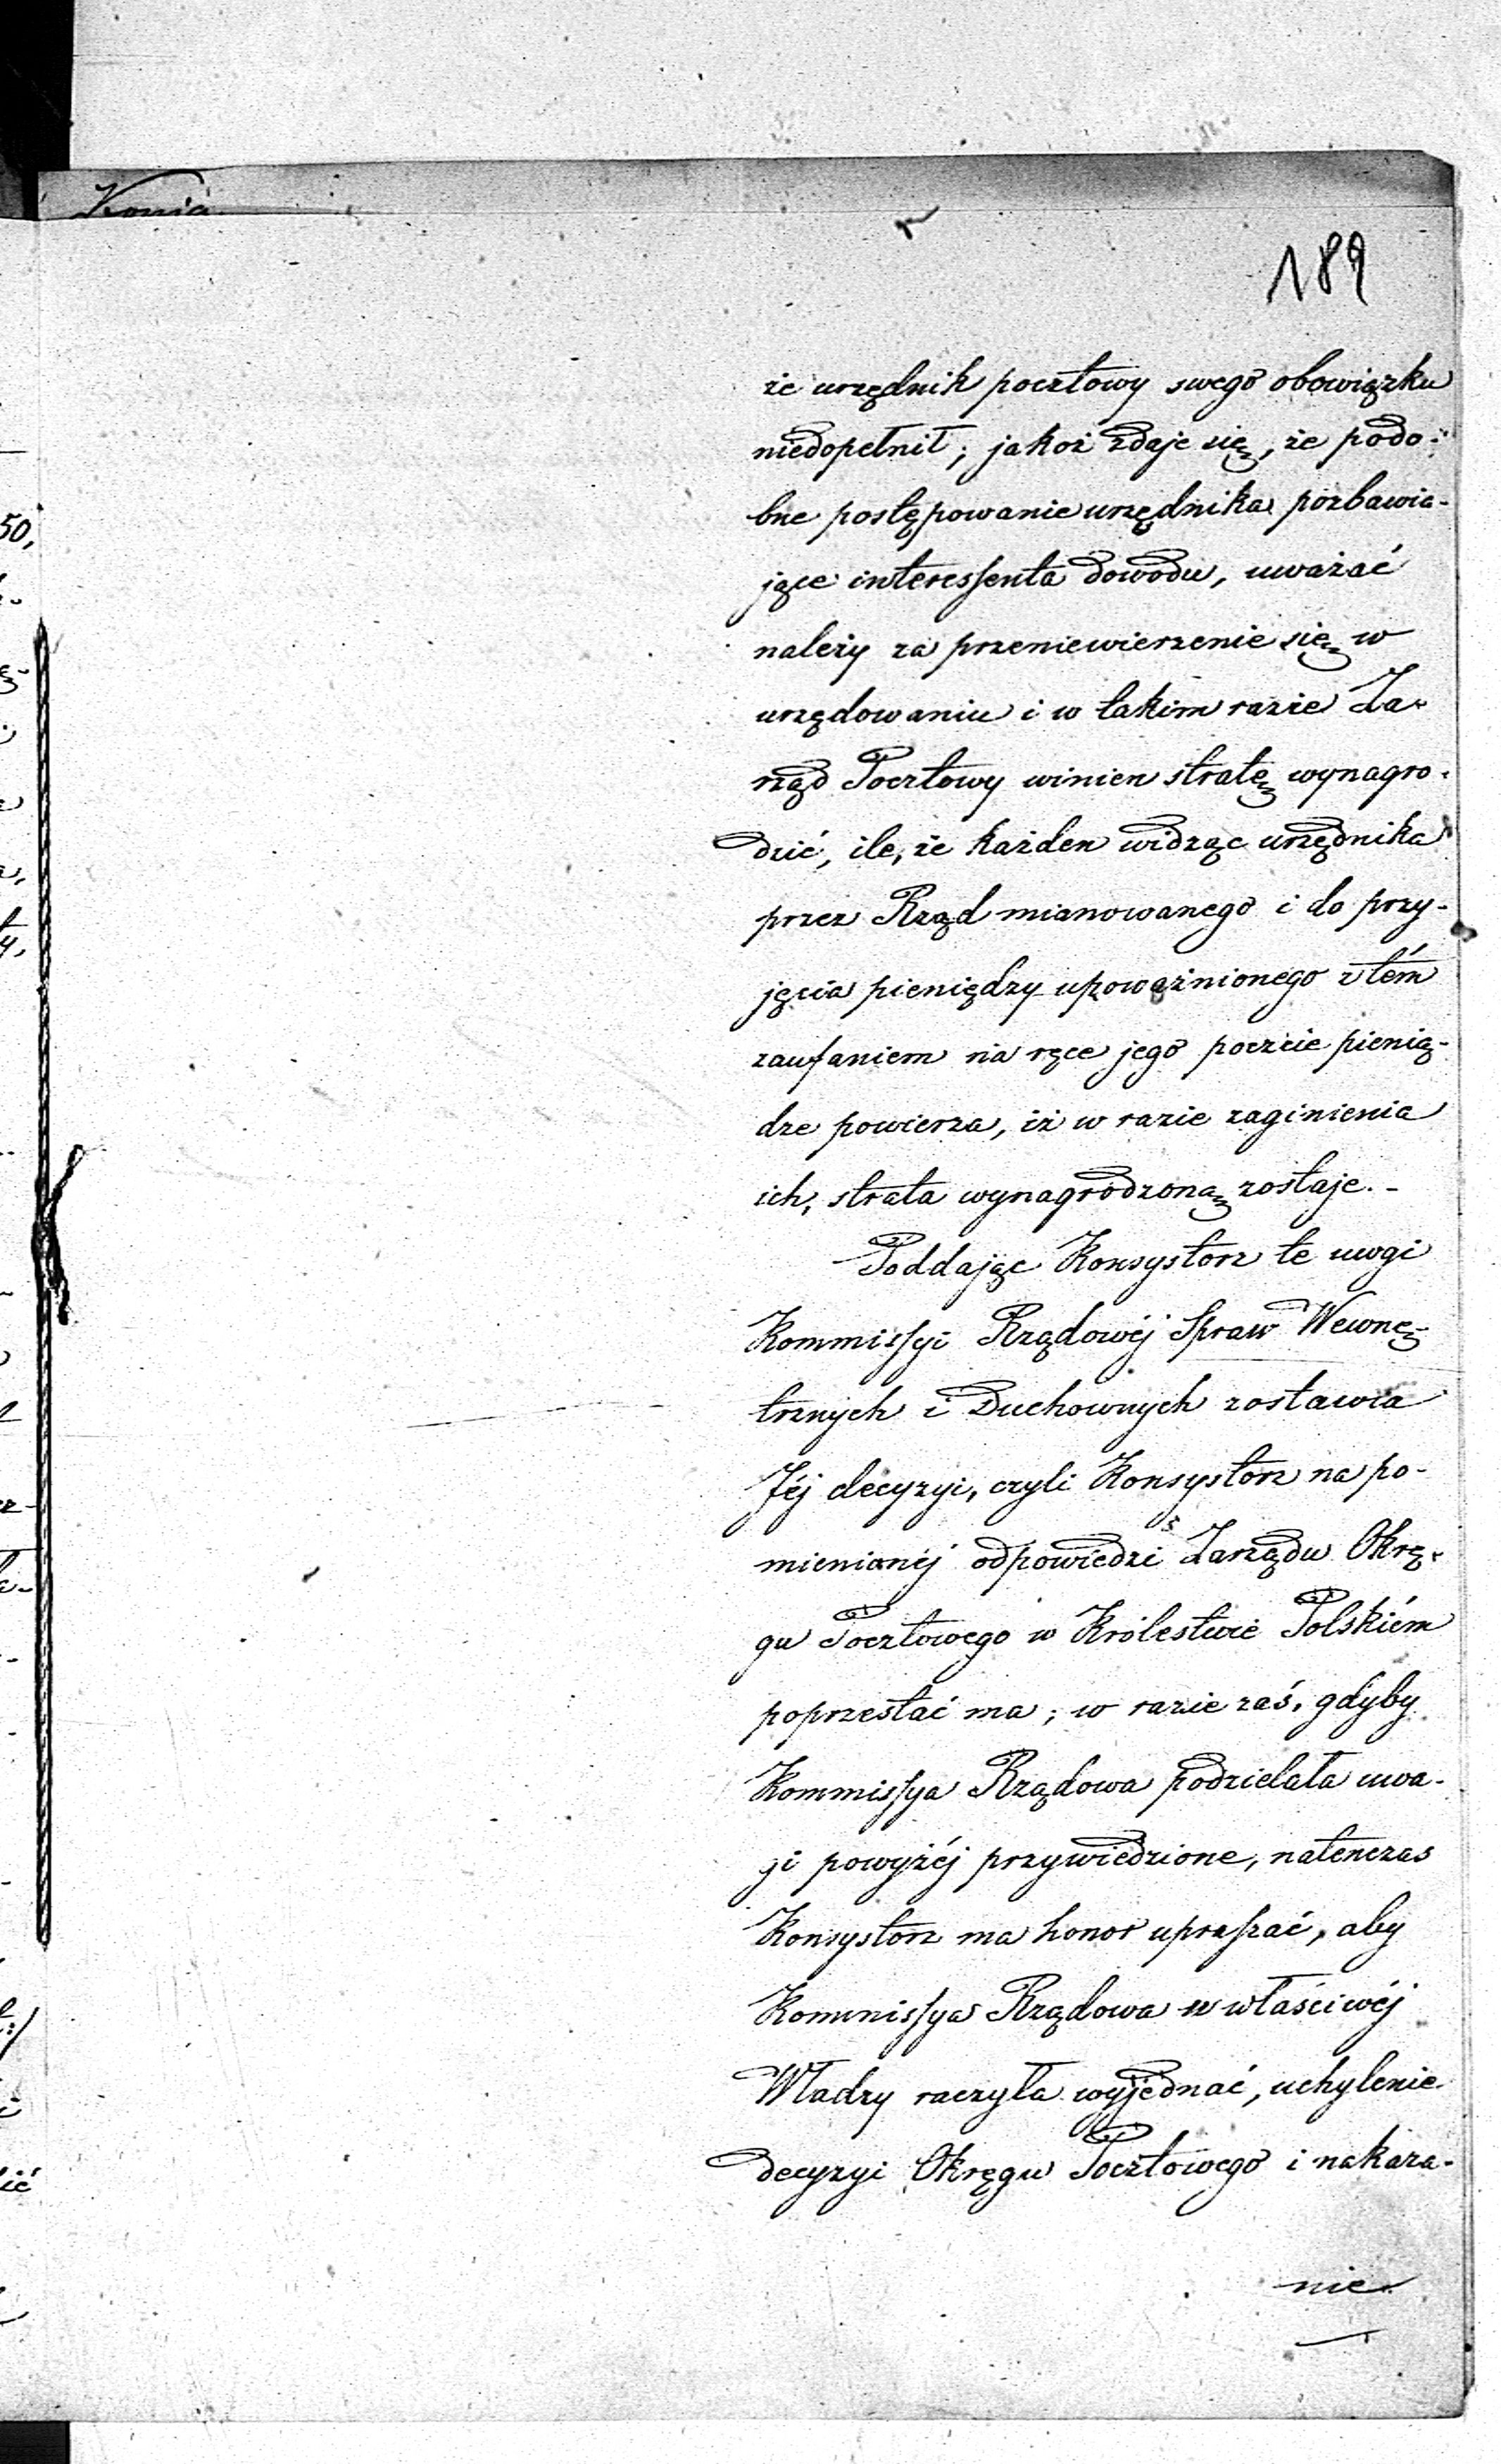 189
że urzędnik pocztowy swego obowiązku
niedopełnił; jakoż zdaje się, że podo-
bne postępowanie urzędnika pozbawia-
jące interessenta dowodu, uważać
należy za przeniewierzenie się w
urzędowaniu i w takim razie Za-
rząd Pocztowy winien stratę wynagro-
dzić, ile, że każden widząc urzędnika
przez Rząd mianowanego i do przy-
jęcia pieniędzy upoważnionego z tém
zaufaniem na ręce jego poczcie pienią-
dze powierza, iż w razie zaginienia
ich, strata wynagrodzoną zostaje.-
Poddając Konsystorz te uwgi
Kommissyi Rządowéj Spraw Wewnę-
trznych i Duchownych zostawia
Jéj decyzyi, czyli Konsystorz na po-
mienionéj odpowiedzi Zarządu Okrę-
gu Pocztowego w Królestwie Polskiém
poprzestać ma; w razie zaś, gdyby
Kommissya Rządowa podzielała uwa-
gi powyżéj przywiedzione, natenczas
Konsystorz ma honor upraszać, aby
Kommissya Rządowa w właściwéj
Władzy raczyła wyjednać, uchylenie
decyzyi Okręgu Pocztowego i nakaza-
nie